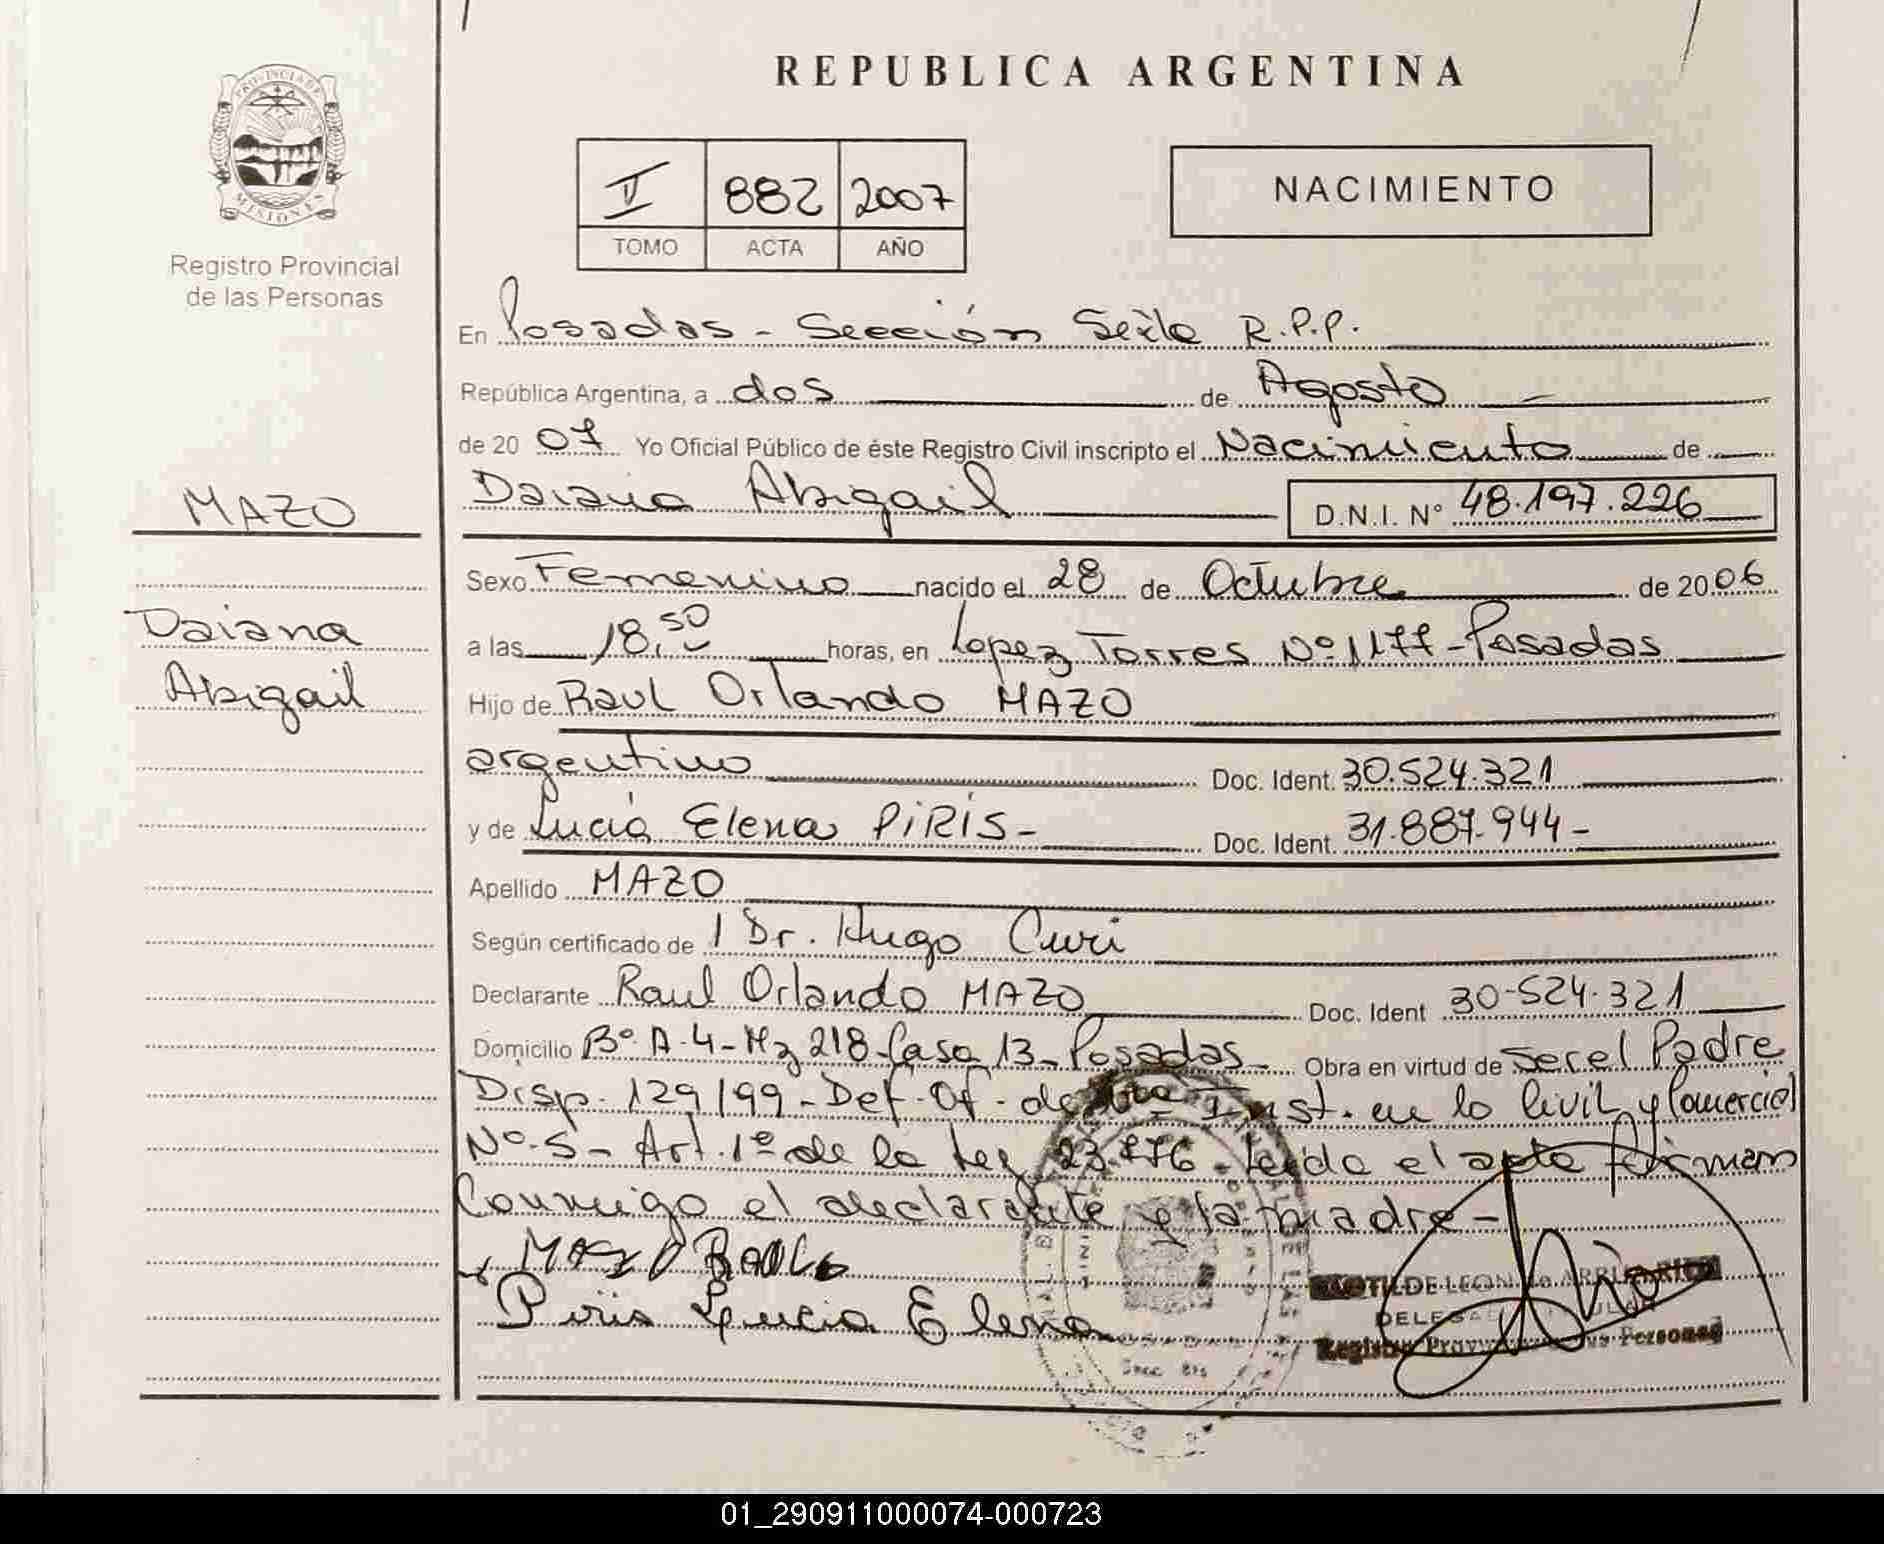 REPUBLICA ARGENTINA
PROVINCIA DE
MISIONES
Registro Provincial
de las Personas
II 882 2007
TOMO ACTA AÑO
NACIMIENTO
En Posadas - Sección Sexta R.P.P.
República Argentina, a dos de Agosto
de 2007 Yo Oficial Público de éste Registro Civil inscripto el Nacimiento de
Daiana Abigail D.N.I. N° 48.197.226
MAZO
Daiana
Abigail
Sexo Femenino nacido el 28 de Octubre de 2006
a las 18,50 horas, en Lopez Torres Nº 1177 - Posadas
Hijo de Raul Orlando MAZO
argentino Doc. Ident. 30.524.321
y de Lucia Elena PIRIS - Doc. Ident. 31.887.944 -
Apellido MAZO
Según certificado de Dr. Hugo Curi
Declarante Raul Orlando MAZO Doc. Ident 30-524.321
Domicilio Bº A-4 - Mz 218 - Casa 13 - Posadas - Obra en virtud de ser el Padre
Disp. 129/99 - Def. Of. de Inst. en lo Civil y Comercial
Nº 5 - Art. 1º de la Ley 23.776 - Leída el acta firman
Conmigo el declarante y la madre -
MAZO RAUL
Piris Lucia Elena
DE LEON de ARRUA
DELEGADA TITULAR
Registro Prov. de las Personas
01_290911000074-000723